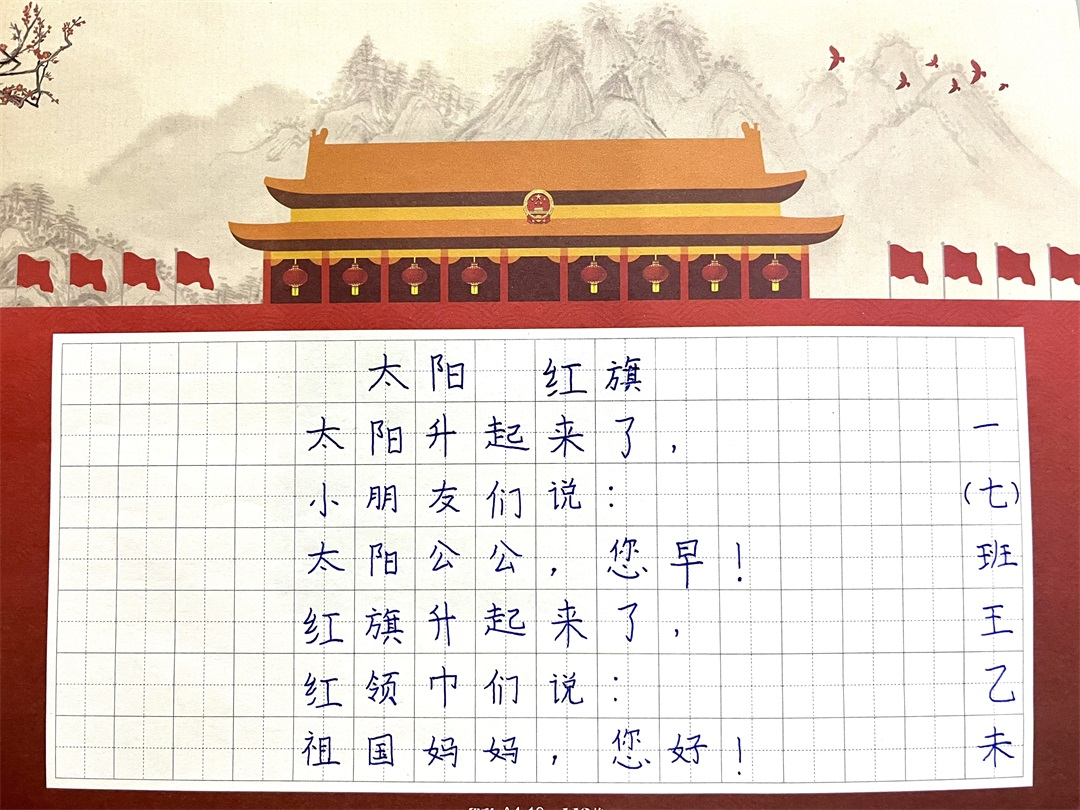 太阳 红旗
太阳升起来了，
小朋友们说：
太阳公公，您早！
红旗升起来了，
红领巾们说：
祖国妈妈，您好！
一(七)班王乙未